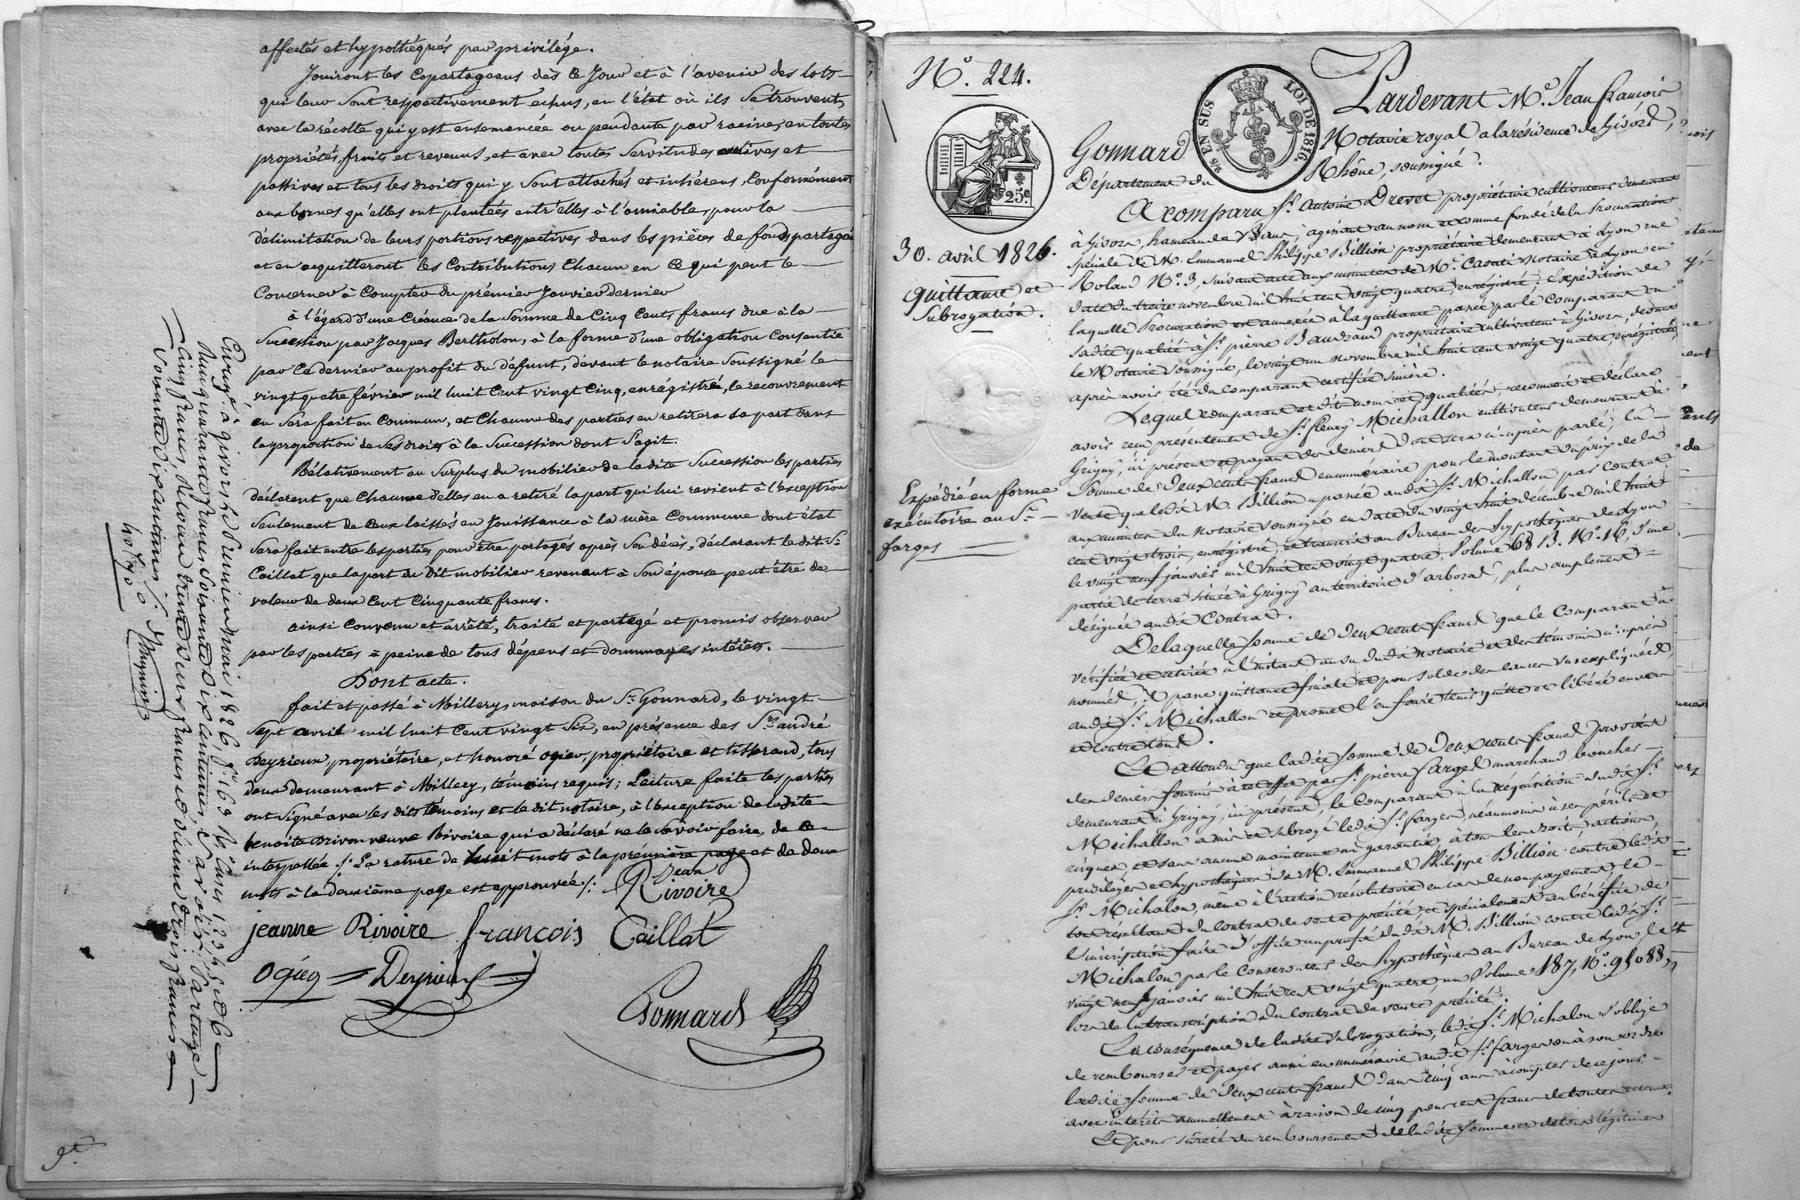 affectés et hypothéqués par privilége.
Jouiront les copartageans dès ce Jour et à l'avenir des lots
qui leur sont respectivement echus, en l'état où ils se trouvent,
avec la récolte qui y est ensemencée ou pendante par racines, en toutes
propriétés, fruits et revenus, et avec toutes Servitudes actives et
passives et tous les droits qui y sont attachés et inhérens, Conformément
aux bornes qu'elles ont plantées entr'elles à l'amiable, pour la
délimitation de leurs portions respectives dans les pièces de fonds partagés
et en acquitteront les Contributions Chacun en ce qui peut le
Concerner à Compter du prémier Janvier dernier
à l'égard d'une Créance de la Somme de Cinq Cents francs due à la
Succession par Jacques Bertholon, à la forme d'une obligation Consentie
par ce dernier au profit du défunt, devant le notaire Soussigné le
vingt quatre février mil huit Cent vingt Cinq, enrégistrée, le recouvrement
en Sera fait en Commun, et Chacune des parties en retirera sa part dans
la proportion de Ses droits à la Succession dont S'agit.
Rélativement au Surplus du mobilier de la dite Succession les parties
déclarent que Chacune d'elles en a retiré la part qui lui revient à l'exception
Seulement de Ceux laissés en Jouissance à la mère Commune dont état
Sera fait entre les parties pour être partagés après Son décès, déclarant le dit Sr.
Caillat que la part du dit mobilier revenant à Son épouse peut être de
valeur de deux Cent Cinquante francs.
ainsi Convenu et arrêté, traité et partagé et promis observer
par les parties à peine de tous dépens et dommages intérêts.
Dont acte.
fait et passé à Millery, maison du Sr. Gonnard, le vingt
Sept avril mil huit Cent vingt Six, en présence des Srs. andré
Deyrieux, propriétaire, et honoré Ogier, propriétaire et tisserand, tous
deux demeurant à Millery, témoins requis; Lecture faite les parties
ont Signé avec les dits témoins et le dit notaire, à l'exception de la dite
benoite veuve Rivoire qui a déclaré ne le Savoir faire, de ce
interpellée ./. La rature de huit mots à la prémière page et de deux
mots à la deuxième page est approuvée ./.
Jean
Rivoire
jeanne Rivoire françois Caillat
Ogier Deyrieux
Gonnard
Enregé à givors le Premier mai 1826, fo. 169 Ro. Cases 1, 2, 3, 4, 5 et 6
francs Soixante dix centimes, Savoir: Partage
Cinq francs, Retour vingt deux francs et dixième trois francs
Soixante dix centimes.
No. 224.
25c.
25 EN SUS
LOI DE 1816
30. avril 1826.
Quittance et
Subrogation.
Expédié en forme
exécutoire au Sr.
farges
Pardevant Me. Jean françois
Gonnard Notaire royal a la résidence de Givors,
Département du Rhône, soussigné.
A comparu Sr. Antoine Drevet propriétaire cultivateur demeurant
à Givors, hameau de , agissant au nom et comme fondé de la Procuration
spéciale de M. Emmanuel Philippe Billion propriétaire demeurant à Lyon rue
Roland No. 3, suivant acte aux minutes de Me. Casati Notaire à Lyon en
date du treize novembre mil huit cent vingt quatre, enregistré; Expédition de
laquelle Procuration est annexée à la quittance passée par le comparant en
sadite qualité à Sr. pierre Baudrand propriétaire cultivateur à Givors, devant
le Notaire soussigné, le vingt un novembre mil huit cent vingt quatre enregistrée,
après avoir été du comparant certifiée sincère.
Lequel comparant esdits noms et qualités, reconnait et déclare
avoir reçu présentement de Sr. fleury Michallon cultivateur demeurant à
Grigny, ici présent et payant des deniers dont sera ci après parlé, la
Somme de Deux cents francs en numéraire pour le montant du prix de la
vente que ledit M. Billion a passée audit Sr. Michallon par contrat
aux minutes du Notaire soussigné en date du vingt huit décembre mil huit
cent vingt trois, enregistré, et transcrit au Bureau des hypothèques de Lyon
le vingt neuf janvier mil huit cent vingt quatre, Volume 68 B. No. 16, d'une
partie de terre située à Grigny au territoire d'arboras, plus amplement
désignée audit Contrat.
De laquelle somme de Deux cents francs que le Comparant a
vérifiée et retirée à l'instant au vu dudit notaire et des témoins ci après
nommés, il passe quittance finale et pour solde des causes sus expliquées,
audit Sr. Michallon et promet l'en faire tenir quitte et libéré envers
et contre tous.
Et attendu que ladite somme de Deux cents francs provient
des deniers fournis à cet effet par Sr. pierre farges marchand boucher
demeurant à Grigny, ici présent, le Comparant à la Réquisition dudit Sr.
Michallon a mis et subrogé ledit Sr. farges, néanmoins à ses périls et
risques et sans aucune maintenue ni garantie, à tous les droits, actions,
privilèges et hypothèques de M. Emmanuel Philippe Billion contre ledit
Sr. Michalon, même à l'action résolutoire en cas de non payement, le
tout resultant du contrat de vente précité, et spécialement au bénéfice de
l'inscription faite d'office au profit dudit M. Billion contre ledit Sr.
Michalon par le Conservateur des hypothèques au Bureau de Lyon le
vingt neuf janvier mil huit cent vingt quatre, au Volume 187, No. 95088,
lors de la transcription du contrat de vente précité.
En conséquence de ladite subrogation, ledit Sr. Michalon s'oblige
de rembourser et payer aussi en numéraire audit Sr. farges ou à son ordre
ladite somme de Deux cents francs dans cinq ans à compter de ce jour
avec intérêts annuellement à raison de cinq pour cent francs de toutes retenues.
Et pour sureté du remboursement de ladite somme et de tous légitimes